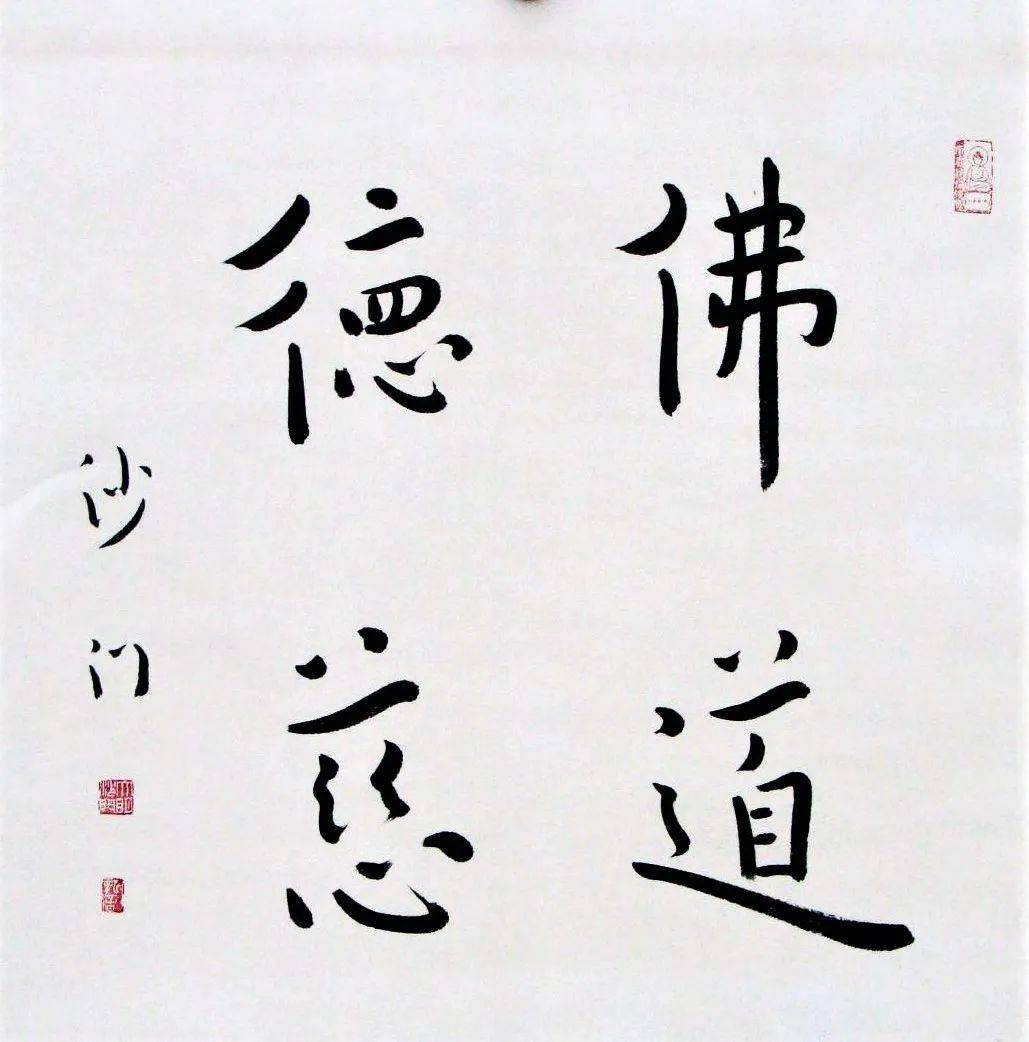 佛道
德慈
沙门